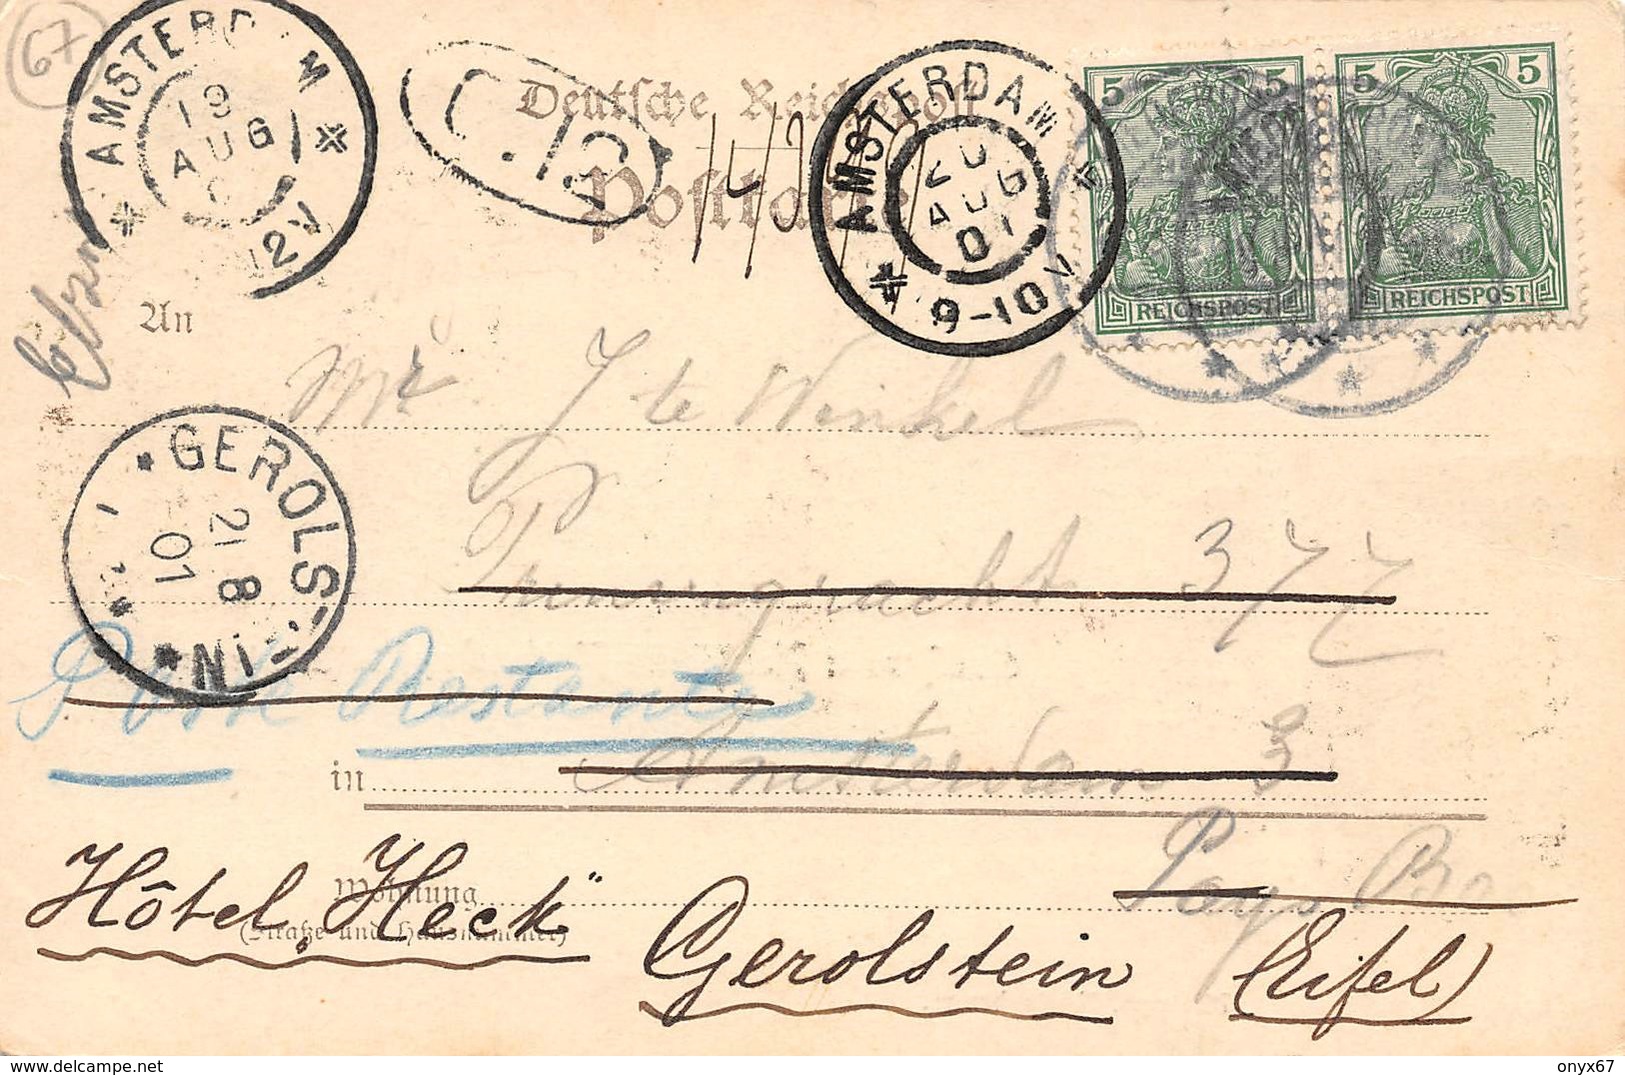 67
AMSTERDAM
19
AUG
12V
C.13
Deutsche Reichspost
Postkarte
AMSTERDAM
20
AUG
01
9-10V
5 5
REICHSPOST
5 5
REICHSPOST
An
Mr J te Winkel
GEROLSTEIN
21 8
01
Prinsengracht 377
Poste Restante
in Amsterdam 3
Pays Bas
Wohnung
(Straße und Hausnummer)
Hôtel „Heck"
Gerolstein (Eifel)
delcampe.net
onyx67